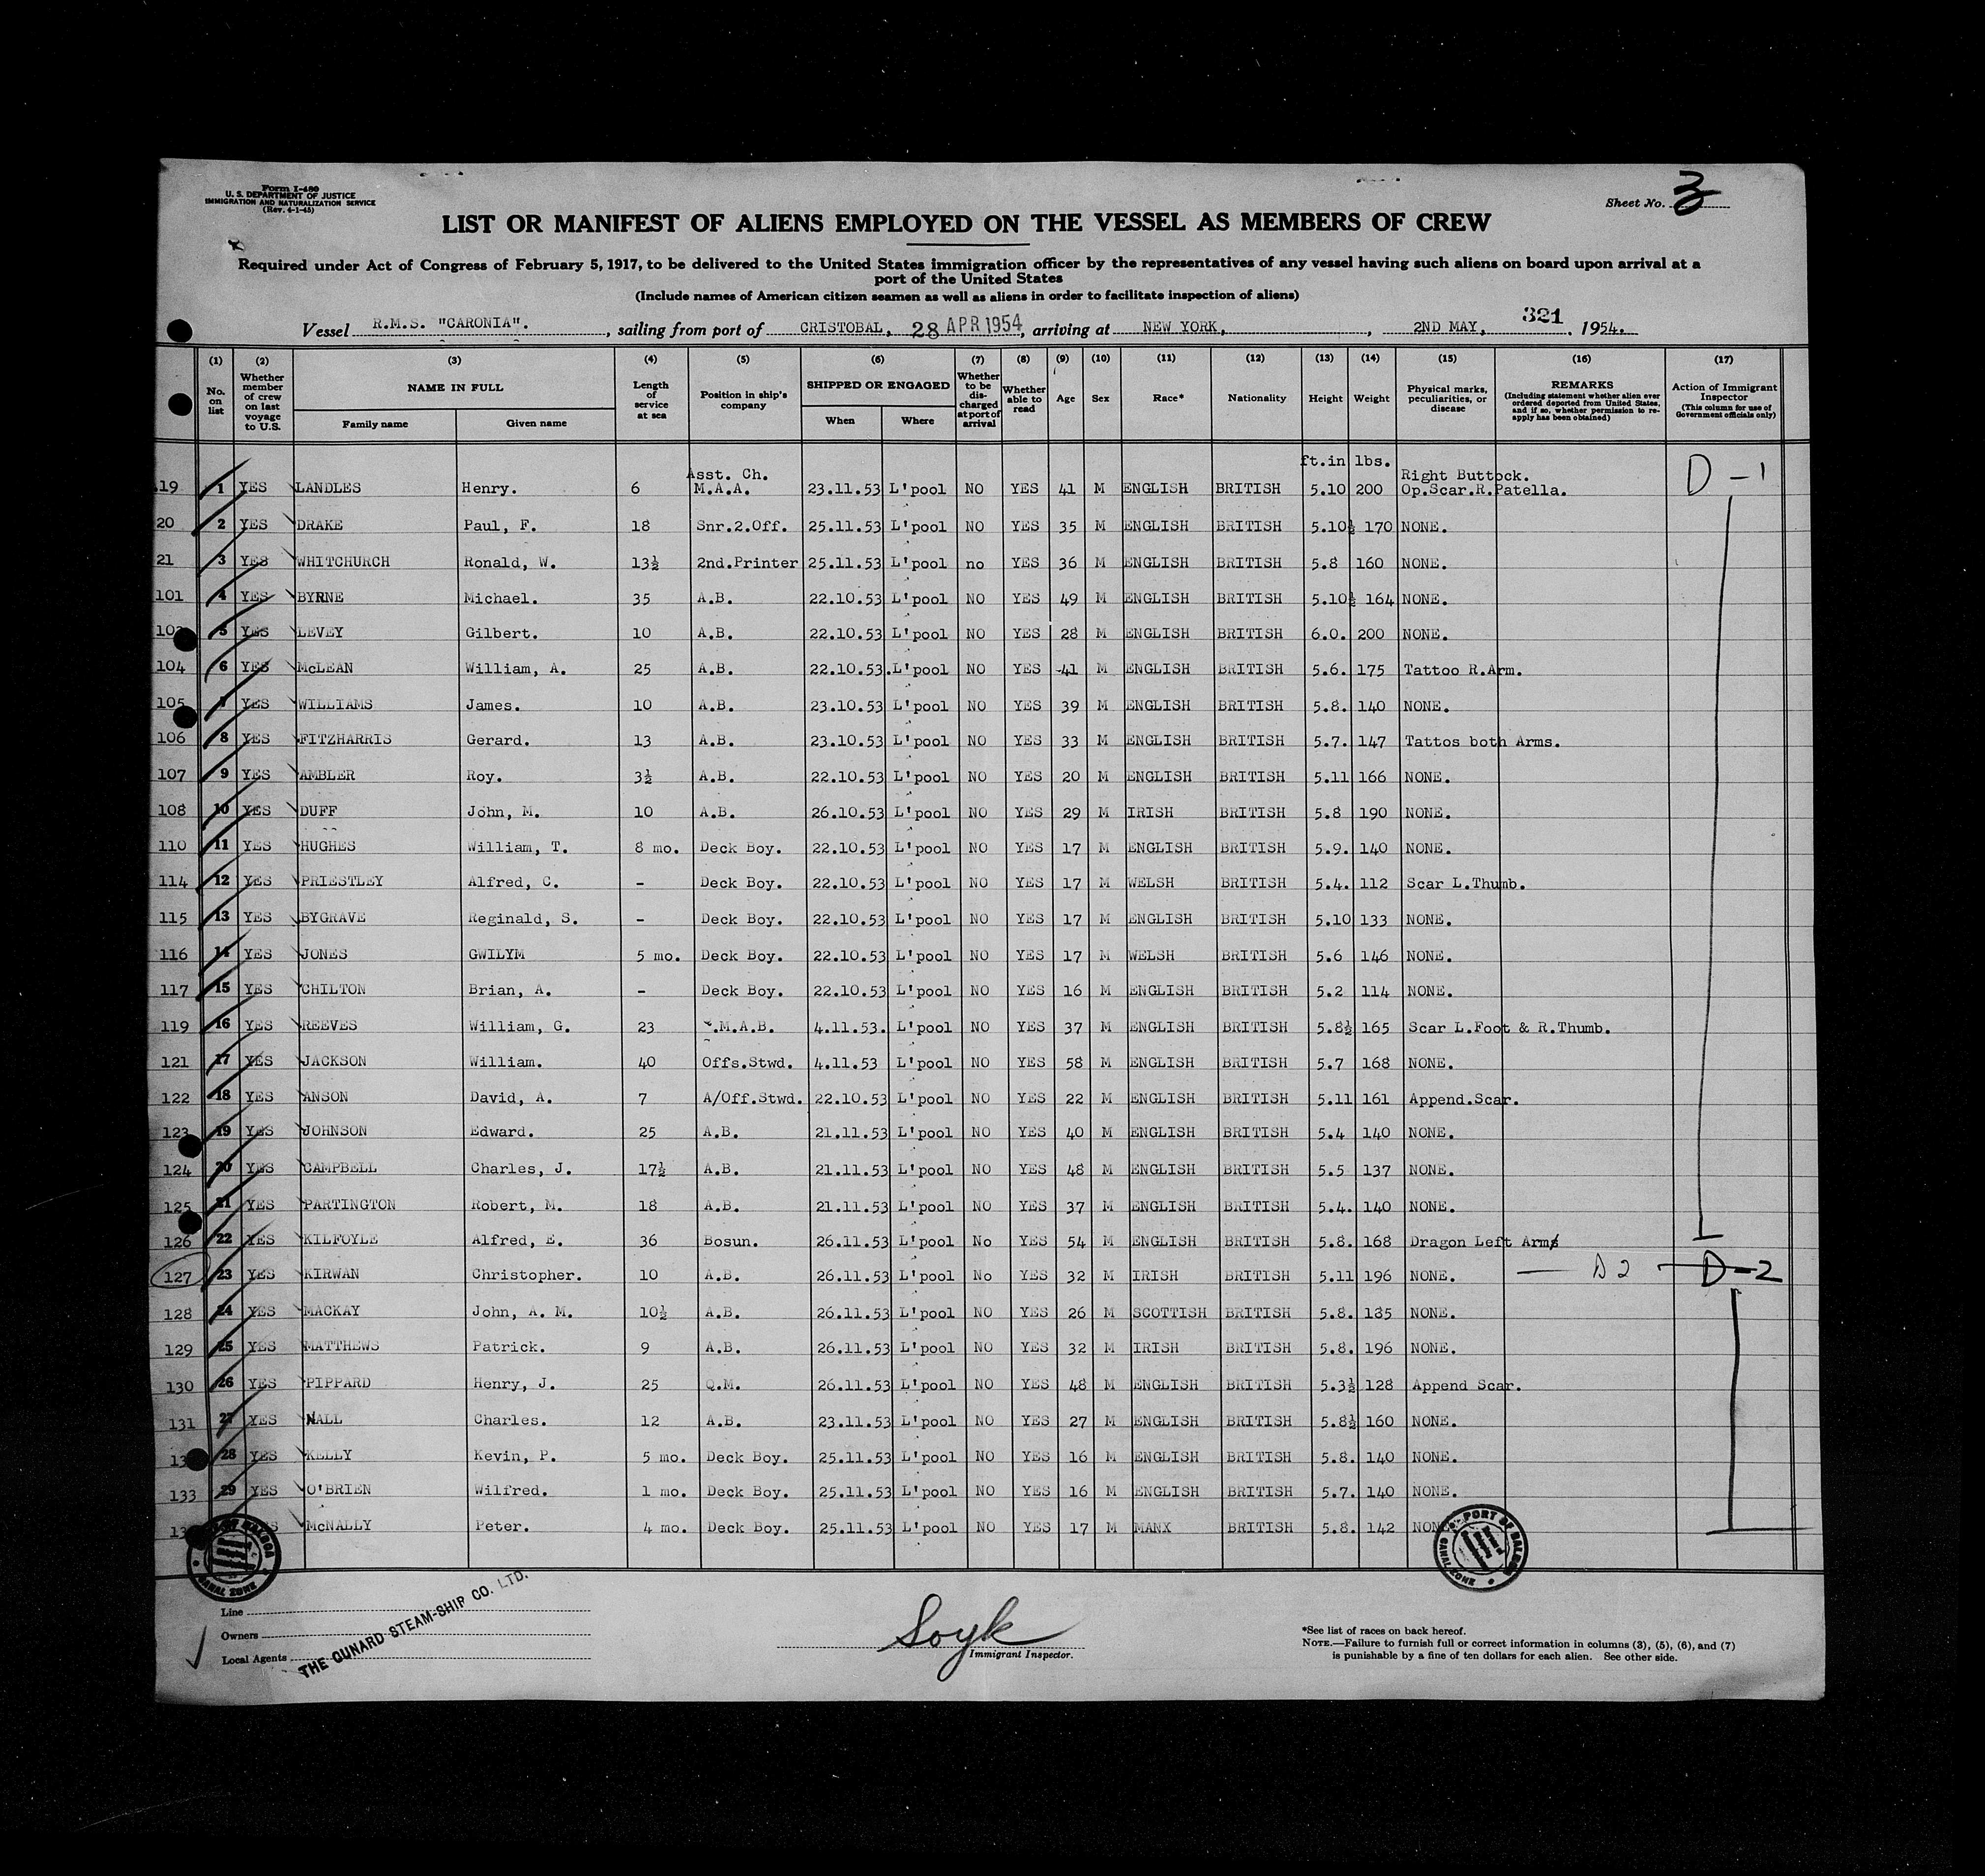 Form I-480
U. S. DEPARTMENT OF JUSTICE
IMMIGRATION AND NATURALIZATION SERVICE
(Rev. 4-1-45)
Sheet No. 3
LIST OR MANIFEST OF ALIENS EMPLOYED ON THE VESSEL AS MEMBERS OF CREW
Required under Act of Congress of February 5, 1917, to be delivered to the United States immigration officer by the representatives of any vessel having such aliens on board upon arrival at a
port of the United States
(Include names of American citizen seamen as well as aliens in order to facilitate inspection of aliens)
Vessel R.M.S. "CARONIA". , sailing from port of CRISTOBAL, 28 APR 1954, arriving at NEW YORK, , 2ND MAY, 321 , 1954.
(1) (2) (3) (4) (5) (6) (7) (8) (9) (10) (11) (12) (13) (14) (15) (16) (17)
No. on list Whether member of crew on last voyage to U.S. NAME IN FULL Family name Given name Length of service at sea Position in ship's company SHIPPED OR ENGAGED When Where Whether to be discharged at port of arrival Whether able to read Age Sex Race* Nationality Height Weight Physical marks, peculiarities, or disease REMARKS (Including statement whether alien ever ordered deported from United States, and if so, whether permission to reapply has been obtained) Action of Immigrant Inspector (This column for use of Government officials only)
ft.in lbs.
19 1 YES LANDLES Henry. 6 Asst. Ch. M.A.A. 23.11.53 L'pool NO YES 41 M ENGLISH BRITISH 5.10 200 Right Buttock. Op.Scar.R.Patella. D-1
20 2 YES DRAKE Paul, F. 18 Snr.2.Off. 25.11.53 L'pool NO YES 35 M ENGLISH BRITISH 5.10½ 170 NONE.
21 3 YES WHITCHURCH Ronald, W. 13½ 2nd.Printer 25.11.53 L'pool no YES 36 M ENGLISH BRITISH 5.8 160 NONE.
101 4 YES BYRNE Michael. 35 A.B. 22.10.53 L'pool NO YES 49 M ENGLISH BRITISH 5.10½ 164 NONE.
5 YES LEVEY Gilbert. 10 A.B. 22.10.53 L'pool NO YES 28 M ENGLISH BRITISH 6.0. 200 NONE.
104 6 YES McLEAN William, A. 25 A.B. 22.10.53. L'pool NO YES 41 M ENGLISH BRITISH 5.6. 175 Tattoo R.Arm.
105 7 YES WILLIAMS James. 10 A.B. 23.10.53 L'pool NO YES 39 M ENGLISH BRITISH 5.8. 140 NONE.
106 8 YES FITZHARRIS Gerard. 13 A.B. 23.10.53 L'pool NO YES 33 M ENGLISH BRITISH 5.7. 147 Tattos both Arms.
107 9 YES AMBLER Roy. 3½ A.B. 22.10.53 L'pool NO YES 20 M ENGLISH BRITISH 5.11 166 NONE.
108 10 YES DUFF John, M. 10 A.B. 26.10.53 L'pool NO YES 29 M IRISH BRITISH 5.8 190 NONE.
110 11 YES HUGHES William, T. 8 mo. Deck Boy. 22.10.53 L'pool NO YES 17 M ENGLISH BRITISH 5.9. 140 NONE.
114 12 YES PRIESTLEY Alfred, C. - Deck Boy. 22.10.53 L'pool NO YES 17 M WELSH BRITISH 5.4. 112 Scar L.Thumb.
115 13 YES BYGRAVE Reginald, S. - Deck Boy. 22.10.53 L'pool NO YES 17 M ENGLISH BRITISH 5.10 133 NONE.
116 14 YES JONES GWILYM 5 mo. Deck Boy. 22.10.53 L'pool NO YES 17 M WELSH BRITISH 5.6 146 NONE.
117 15 YES CHILTON Brian, A. - Deck Boy. 22.10.53 L'pool NO YES 16 M ENGLISH BRITISH 5.2 114 NONE.
119 16 YES REEVES William, G. 23 .M.A.B. 4.11.53. L'pool NO YES 37 M ENGLISH BRITISH 5.8½ 165 Scar L.Foot & R.Thumb.
121 17 YES JACKSON William. 40 Offs.Stwd. 4.11.53 L'pool NO YES 58 M ENGLISH BRITISH 5.7 168 NONE.
122 18 YES ANSON David, A. 7 A/Off.Stwd. 22.10.53 L'pool NO YES 22 M ENGLISH BRITISH 5.11 161 Append.Scar.
123 19 YES JOHNSON Edward. 25 A.B. 21.11.53 L'pool NO YES 40 M ENGLISH BRITISH 5.4 140 NONE.
124 20 YES CAMPBELL Charles, J. 17½ A.B. 21.11.53 L'pool NO YES 48 M ENGLISH BRITISH 5.5 137 NONE.
125 21 YES PARTINGTON Robert, M. 18 A.B. 21.11.53 L'pool NO YES 37 M ENGLISH BRITISH 5.4. 140 NONE.
126 22 YES KILFOYLE Alfred, E. 36 Bosun. 26.11.53 L'pool No YES 54 M ENGLISH BRITISH 5.8. 168 Dragon Left Arms
127 23 YES KIRWAN Christopher. 10 A.B. 26.11.53 L'pool No YES 32 M IRISH BRITISH 5.11 196 NONE. D2 D-2
128 24 YES MACKAY John, A. M. 10½ A.B. 26.11.53 L'pool NO YES 26 M SCOTTISH BRITISH 5.8. 185 NONE.
129 25 YES MATTHEWS Patrick. 9 A.B. 26.11.53 L'pool NO YES 32 M IRISH BRITISH 5.8. 196 NONE.
130 26 YES PIPPARD Henry, J. 25 Q.M. 26.11.53 L'pool NO YES 48 M ENGLISH BRITISH 5.3½ 128 Append Scar.
131 27 YES NALL Charles. 12 A.B. 23.11.53 L'pool NO YES 27 M ENGLISH BRITISH 5.8½ 160 NONE.
28 YES KELLY Kevin, P. 5 mo. Deck Boy. 25.11.53 L'pool NO YES 16 M ENGLISH BRITISH 5.8. 140 NONE.
133 29 YES O'BRIEN Wilfred. 1 mo. Deck Boy. 25.11.53 L'pool NO YES 16 M ENGLISH BRITISH 5.7. 140 NONE.
McNALLY Peter. 4 mo. Deck Boy. 25.11.53 L'pool NO YES 17 M MANX BRITISH 5.8. 142 NONE
PORT OF BALBOA CANAL ZONE
PORT OF BALBOA CANAL ZONE
Line
Owners
Local Agents
THE CUNARD STEAM-SHIP CO. LTD.
Soyk
Immigrant Inspector.
*See list of races on back hereof.
NOTE.—Failure to furnish full or correct information in columns (3), (5), (6), and (7)
is punishable by a fine of ten dollars for each alien. See other side.